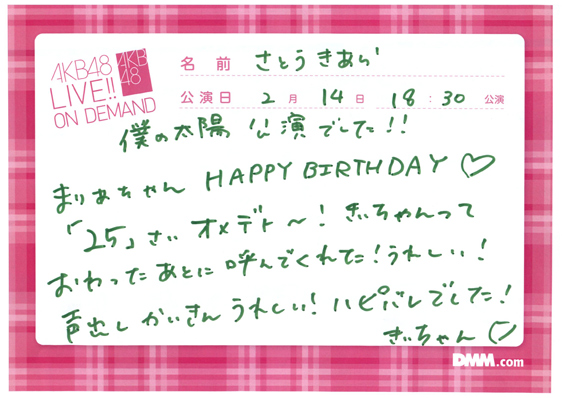 AKB48
LIVE!!
ON DEMAND
AKB
48
名前 さとう きあら
公演日 2月 14日 18:30 公演
僕の太陽 公演でした!!
まりあちゃん HAPPY BIRTHDAY♡
「25」さい オメデト〜! きぃちゃんって
おわったあとに 呼んでくれた!うれしい!
声出し かいきん うれしい!ハピバレでした!
きぃちゃん♡
DMM.com